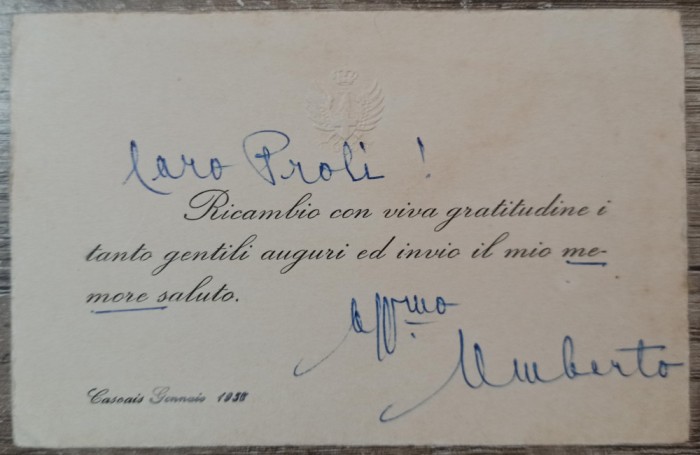 Caro Proli !
Ricambio con viva gratitudine i
tanto gentili auguri ed invio il mio me-
more saluto.
Aff.mo
Umberto
Cascais Gennaio 1958